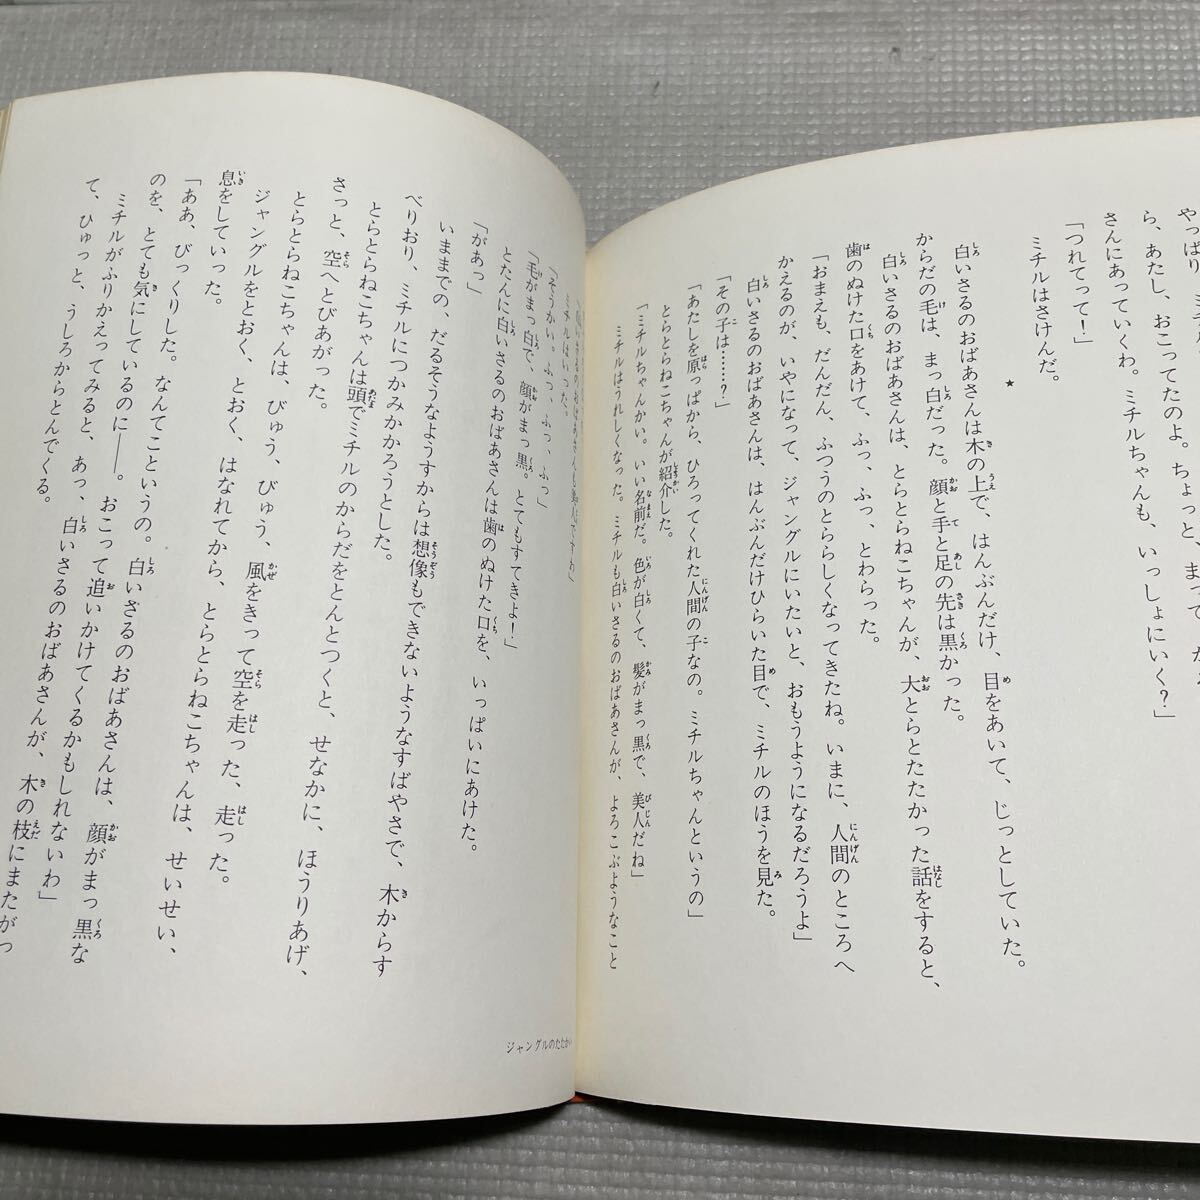 ら、あたし、おこってたのよ。ちょっと、まって
さんにあっていくわ。ミチルちゃんも、いっしょにいく?」
「つれてって!」
ミチルはさけんだ。
★
白いさるのおばあさんは木の上で、はんぶんだけ、目をあいて、じっとしていた。
からだの毛は、まっ白だった。顔と手と足の先は黒かった。
白いさるのおばあさんは、とらとらねこちゃんが、大とらとたたかった話をすると、
歯のぬけた口をあけて、ふっ、ふっ、とわらった。
「おまえも、だんだん、ふつうのとららしくなってきたね。いまに、人間のところへ
かえるのが、いやになって、ジャングルにいたいと、おもうようになるだろうよ」
白いさるのおばあさんは、はんぶんだけひらいた目で、ミチルのほうを見た。
「その子は……?」
「あたしを原っぱから、ひろってくれた人間の子なの。ミチルちゃんというの」
とらとらねこちゃんが紹介した。
「ミチルちゃんかい。いい名前だ。色が白くて、髪がまっ黒で、美人だね」
ミチルはうれしくなった。ミチルも白いさるのおばあさんが、よろこぶようなこと
ミチルはいった。
「そうかい。ふっ、ふっ、ふっ」
「毛がまっ白で、顔がまっ黒。とてもすてきよ!」
とたんに白いさるのおばあさんは歯のぬけた口を、いっぱいにあけた。
「があっ」
いままでの、だるそうなようすからは想像もできないようなすばやさで、木からす
べりおり、ミチルにつかみかかろうとした。
とらとらねこちゃんは頭でミチルのからだをとんとつくと、せなかに、ほうりあげ、
さっと、空へとびあがった。
とらとらねこちゃんは、びゅう、びゅう、風をきって空を走った、走った。
ジャングルをとおく、とおく、はなれてから、とらとらねこちゃんは、せいせい、
息をしていった。
「ああ、びっくりした。なんてこというの。白いざるのおばあさんは、顔がまっ黒な
のを、とても気にしているのに――。おこって追いかけてくるかもしれないわ」
ミチルがふりかえってみると、あっ、白いさるのおばあさんが、木の枝にまたがっ
て、ひゅっと、うしろからとんでくる。
ジャングルのたたかい